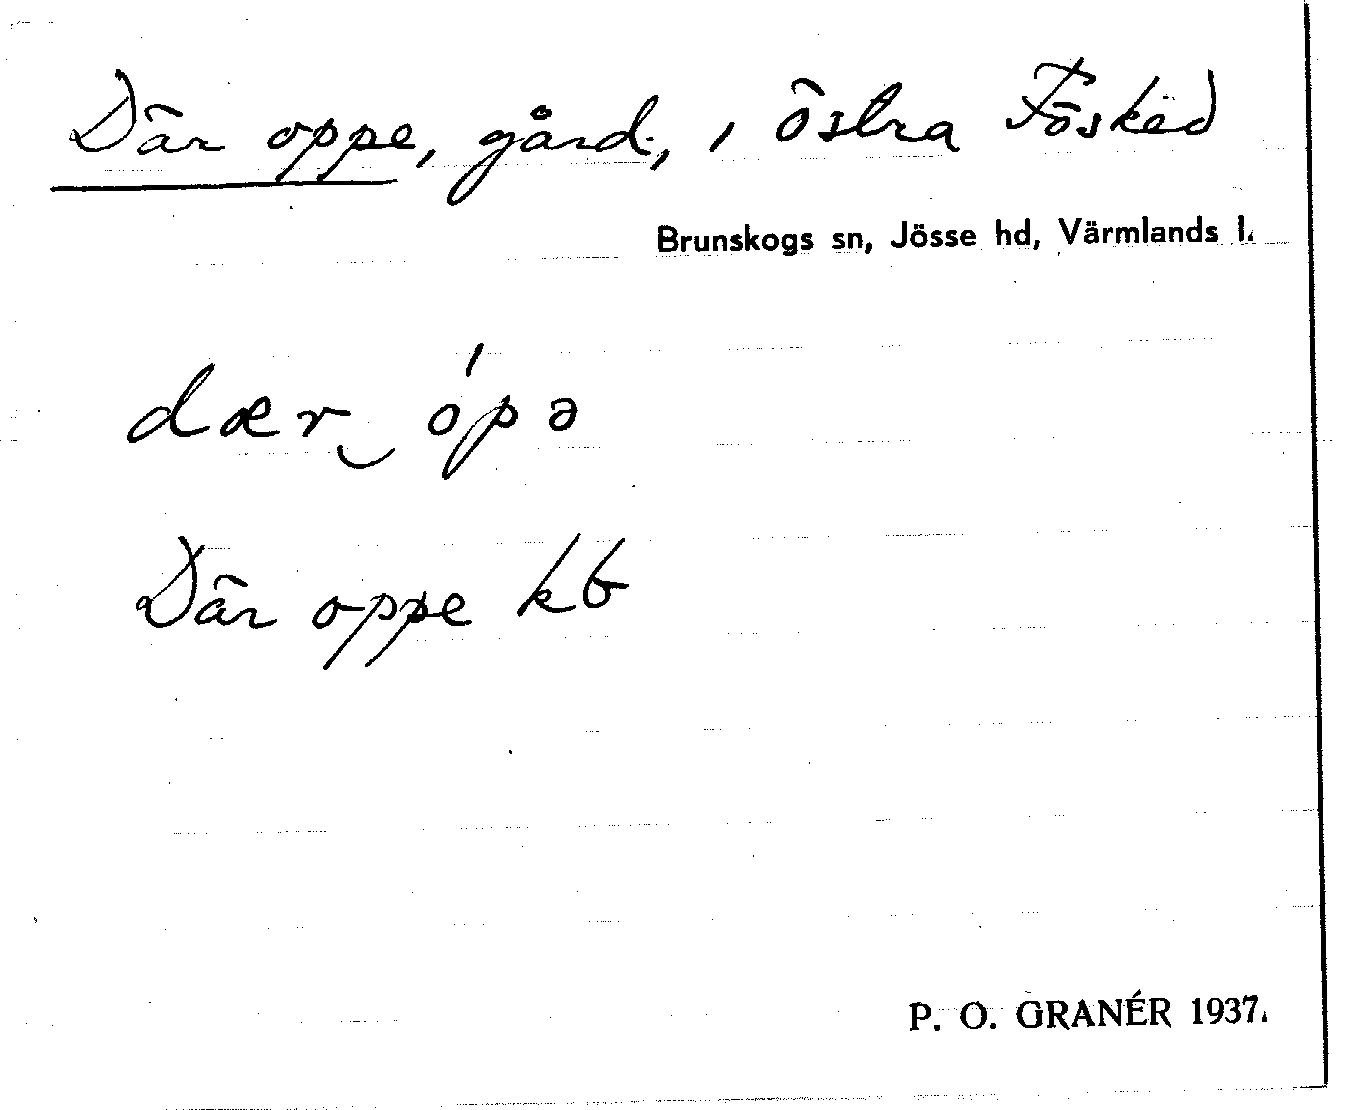 Där oppe, gård, i östra Fösked
Brunskogs sn, Jösse hd, Värmlands l.
dær‿ópə
Där oppe kb
P. O. GRANÉR 1937.